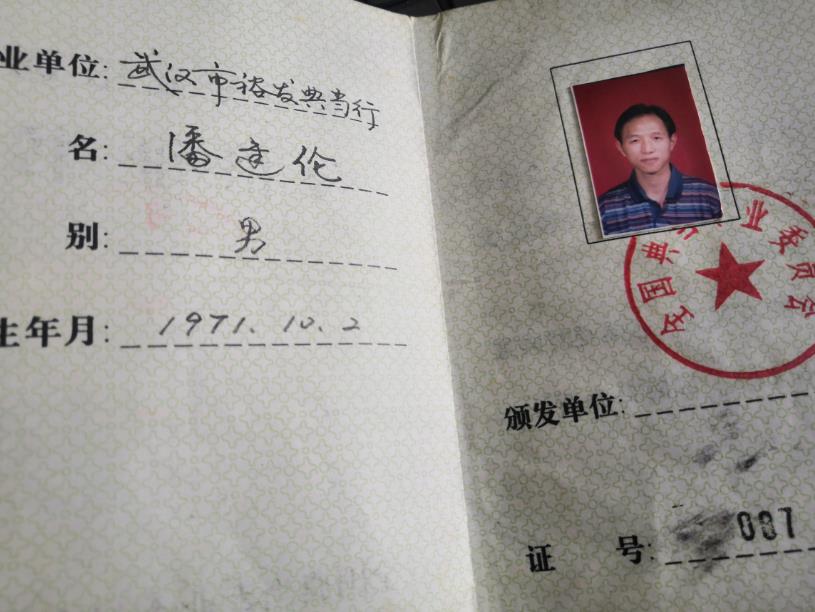 业单位: 武汉市裕发典当行
名: 潘建伦
别: 男
生年月: 1971.10.2
全国典当业委员会
颁发单位:
证 号: 087